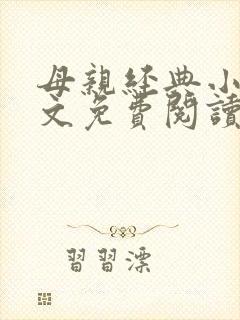 母親經典小
文免費閱讀
習習漂